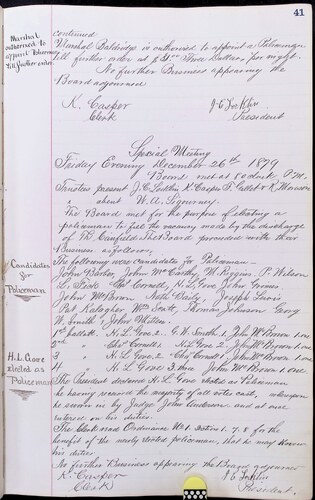 41
Marshal
authorised to
appoint Policeman
till further order
continued
Marshal Baldridge is authorised to appoint a Policeman
till further order at $3.00 Three Dollars per night.
No further Business appearing the
Board adjourned
K. Casper
Clerk
President
Special Meeting
Friday Evening December 26th 1879
Board met at 8 o'clock P.M.
Trustees present K. Casper
absent W. A. Sigourney.
The Board met for the purpose of electing a
policeman to fill the vacancy made by the discharge
of Canfield The Board proceeded with their
Business as follows,
Candidates
for
Policeman
The following were candidates for Policeman
John Barbor, John McCarthy, M. Riggins, P. Wilson
L. Chs Cornell, H. L. Gove, John Grimes
John McBrown Nath Daily, Joseph Lewis
Pat Kalagher Wm Scott, Thomas Johnson Georg
W. Smith John Whitten
1st ballott H. L. Gove 2. G. W. Smith 1. John McBrown 1 one
2nd " Chs Cornell 1. H. L. Gove 2. John McBrown 1 one
3 " H. L. Gove 2 Chs Cornell 1 John McBrown 1 one
4 " H. L. Gove 3. three John McBrown 1 one
H. L. Gove
elected as
Policeman
The President declared H. L. Gove elected as Policeman
he having received the majority of all votes cast, whereupon
he sworn in by Judge John Anderson and at once
entered on his duties.
The Clerk read Ordinance No 1. Sections 1. 7. 8 for the
benefit of the newly elected policeman, that he may know
his duties
No further Business appearing the Board adjourned
K. Casper
Clerk
President